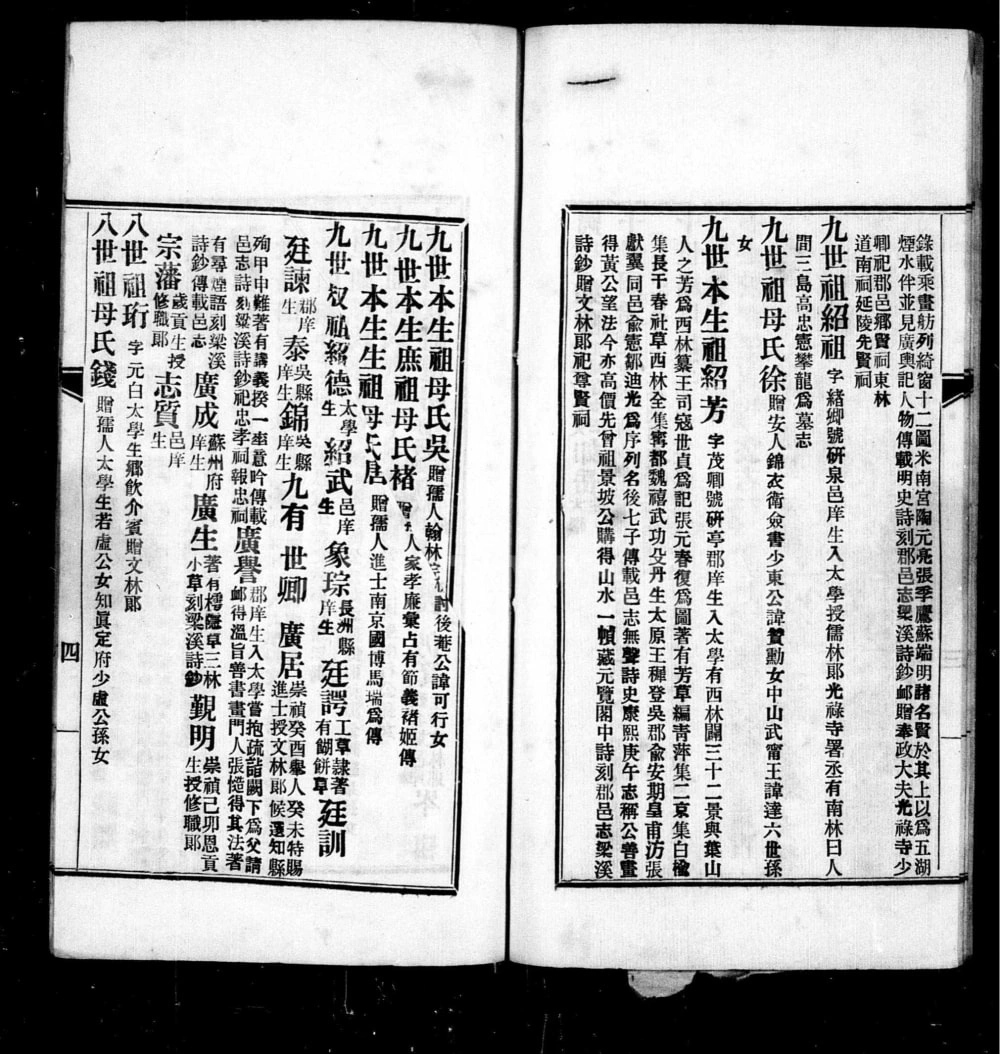 錄載乘畫舫列綺窗十二圖米南宮陶元亮張季鷹蘇端明諸名賢於其上以爲五湖
煙水伴並見廣輿記人物傳載明史詩刻郡邑志梁溪詩鈔邮贈奉政大夫光祿寺少
卿祀郡邑鄉賢祠東林
道南祠延陵先賢祠
九世祖紹祖 字緒卿號研泉邑庠生入太學授儒林郞光祿寺署丞有南林曰人
間三島高忠憲攀龍爲墓志
九世祖母氏徐 贈安人錦衣衛僉書少東公諱贊勳女中山武甯王諱達六世孫
女
九世本生祖紹芳 字茂卿號研亭郡庠生入太學有西林闢三十二景與葉山
人之芳爲西林纂王司寇世貞爲記張元春復爲圖著有芳草編靑萍集二京集白楡
集長干春社草西林全集寗都魏禧武功殳丹生太原王穉登吳郡俞安期皇甫汸張
獻翼同邑俞憲鄒迪光爲序列名後七子傳載邑志無聲詩史康熙庚午志稱公善畫
得黃公望法今亦高價先曾祖景坡公購得山水一幀藏元覽閣中詩刻郡邑志梁溪
詩鈔贈文林郞祀尊賢祠
九世本生祖母氏吳 贈孺人翰林 討後菴公諱可行女
九世本生庶祖母氏褚 人家孝廉彙占有節義褚姬傳
九世本生生祖母氏 贈孺人進士南京國博馬瑞爲傳
九世叔祖紹德 太學生 紹武 邑庠生 象琮 長洲縣庠生 廷諤 工草隸著有餬餅草 廷訓
廷諫 郡庠生 泰 吳縣庠生 錦 吳縣庠生 九有 世卿 廣居 崇禎癸酉舉人癸未特賜進士授文林郞候選知縣
殉甲申難著有講義揆一集意吟傳載
邑志詩刻梁溪詩鈔祀忠孝祠報忠祠 廣譽 郡庠生入太學嘗抱疏詣闕下爲父請邮得溫旨善書畫門人張愷得其法著
有尋煙語刻梁溪
詩鈔傳載邑志 廣成 蘇州府庠生 廣生 著有樗隱草三林小草刻梁溪詩鈔 觀明 崇禎己卯恩貢生授修職郞
宗藩 歲貢生授修職郞 志質 邑庠生
八世祖珩 字元白太學生鄕飮介賓贈文林郞
八世祖母氏錢 贈孺人太學生若虛公女知眞定府少虛公孫女
四